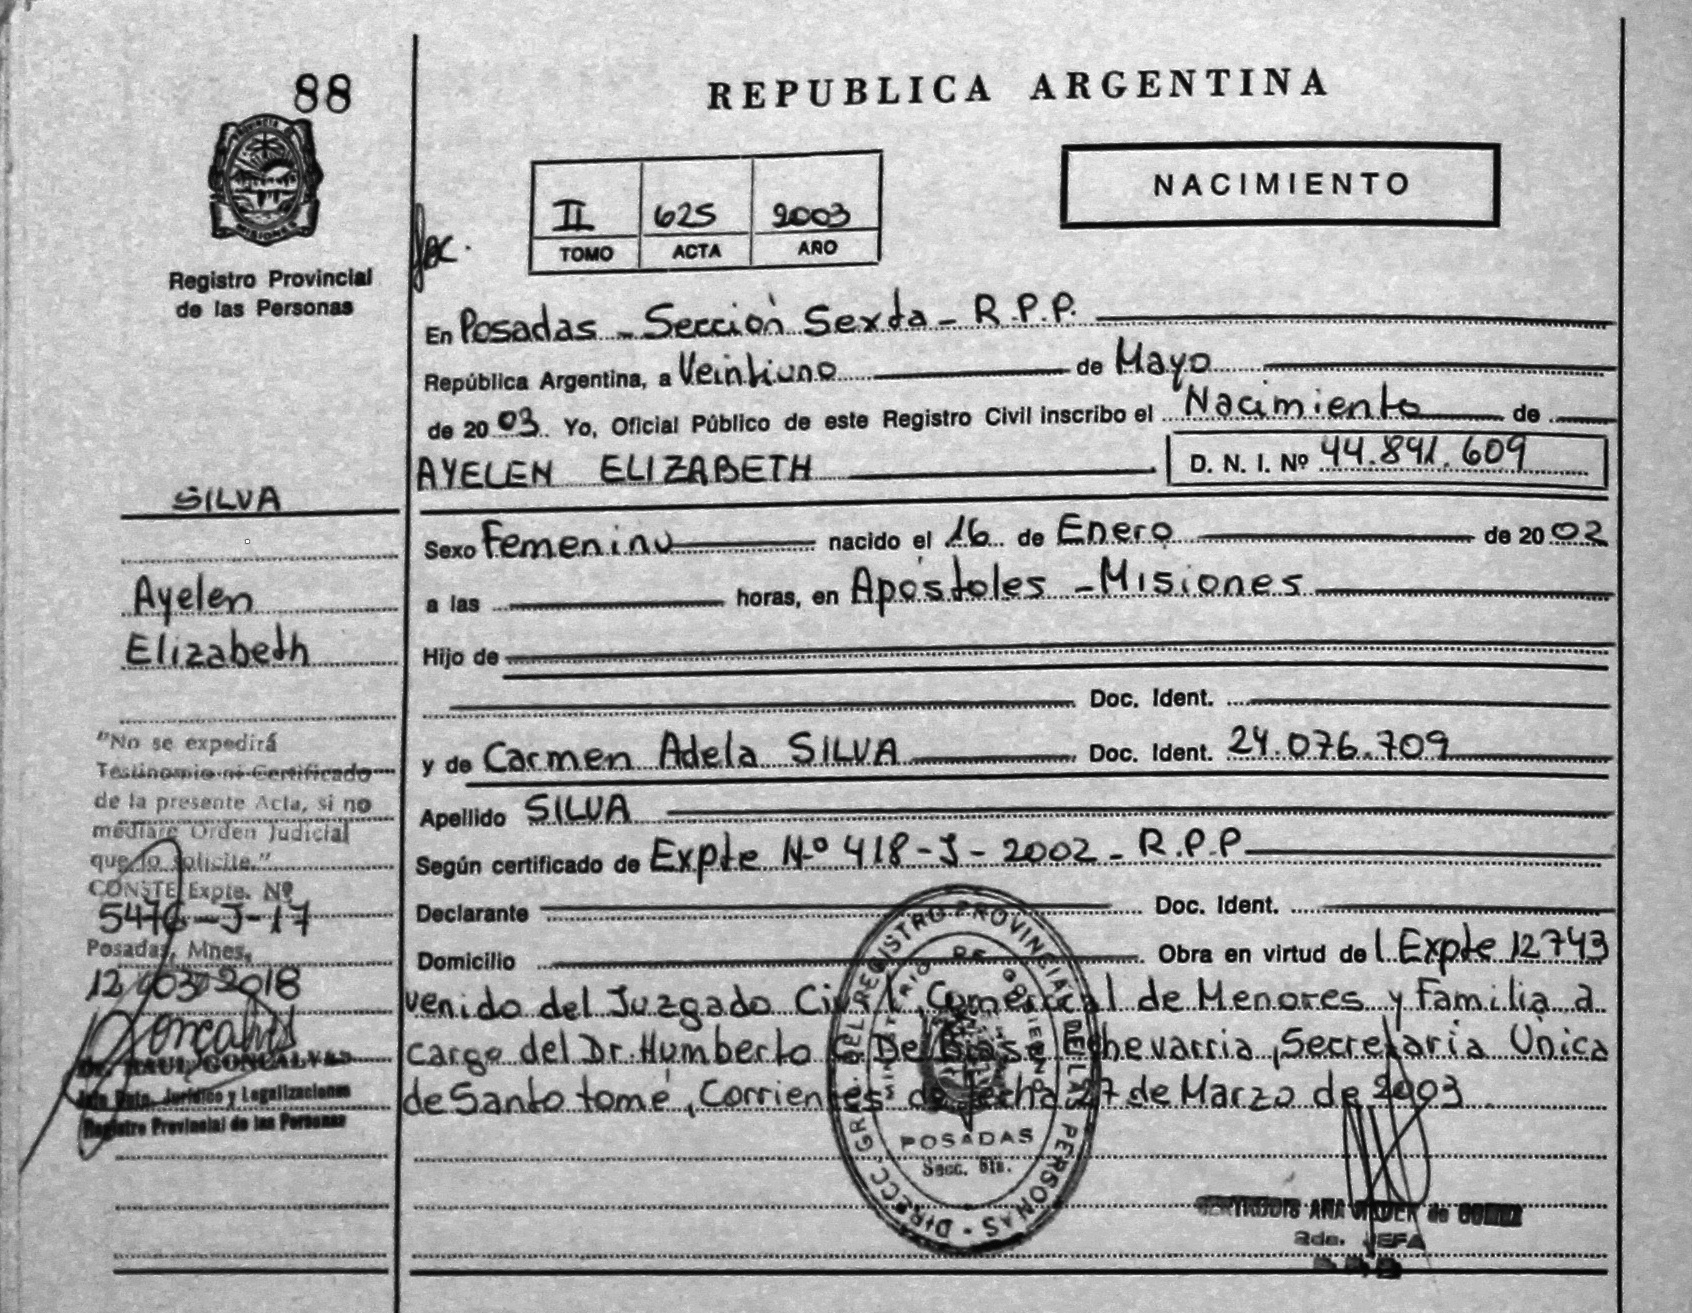 88
REPUBLICA ARGENTINA
PROVINCIA DE
MISIONES
Registro Provincial
de las Personas
II 625 2003
TOMO ACTA AÑO
NACIMIENTO
En Posadas - Sección Sexta - R.P.P.
República Argentina, a Veintiuno de Mayo
de 2003. Yo, Oficial Público de este Registro Civil inscribo el Nacimiento de
AYELEN ELIZABETH D. N. I. Nº 44.841.609
SILVA
Ayelen
Elizabeth
Sexo Femenino nacido el 16 de Enero de 2002
a las horas, en Apóstoles - Misiones
Hijo de
Doc. Ident.
y de Carmen Adela SILVA Doc. Ident. 24.076.709
Apellido SILVA
Según certificado de Expte Nº 418-J-2002 - R.P.P
Declarante Doc. Ident.
Domicilio Obra en virtud del Expte 12743
venido del Juzgado Civil, Comercial de Menores y Familia a
cargo del Dr. Humberto De Echevarria, Secretaría Única
de Santo tomé, Corrientes de fecha 27 de Marzo de 2003.
"No se expedirá
Testimonio ni Certificado
de la presente Acta, si no
mediare Orden Judicial
que lo solicite."
CONSTE Expte. Nº
5476-J-17
Posadas, Mnes,
12 03 2018
Dr. RAUL GONCALVES
Jefe Dpto. Jurídico y Legalizaciones
Registro Provincial de las Personas
DIRECC. GRAL. DEL REGISTRO PROVINCIAL DE LAS PERSONAS
MINISTERIO DE GOBIERNO
POSADAS
Secc. 6ta.
2da. JEFA